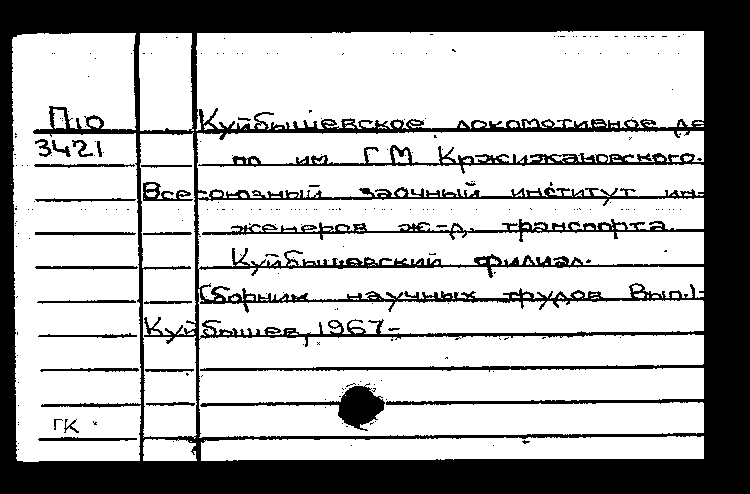 П10
Куйбышевское локомотивное де
3421
по им Г М Кржижановского.
Всесоюзный заочный институт ин-
женеров ж.-д. транспорта.
Куйбышевский филиал.
Сборник научных трудов Вып.1-
Куйбышев, 1967-
ГК